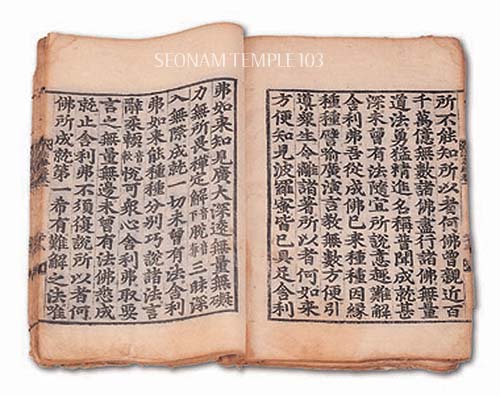 SEONAM TEMPLE 103
所不能知所以者何佛曾親近百
千萬億無數諸佛盡行諸佛無量
道法勇猛精進名稱普聞成就甚
深未曾有法隨宜所說意趣難解
舍利弗吾從成佛已來種種因緣
種種譬喻廣演言教無數方便引
導衆生令離諸著所以者何如來
方便知見波羅蜜皆已具足舍利
弗如來知見廣大深遠無量無礙
力無所畏禪定解脫三昧深
入無際成就一切未曾有法舍利
弗如來能種種分別巧說諸法言
辭柔軟悅可衆心舍利弗取要
言之無量無邊未曾有法佛悉成
就止舍利弗不須復說所以者何
佛所成就第一希有難解之法唯